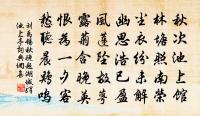 秋次池上館
林塘照南榮
塵衣紛未解
幽思浩已盈
風蓮墜故萼
露菊含晚英
恨為一夕客
愁聽晨鷄鳴
劉禹錫秋晚題湖城驛
池上亭詞典網集